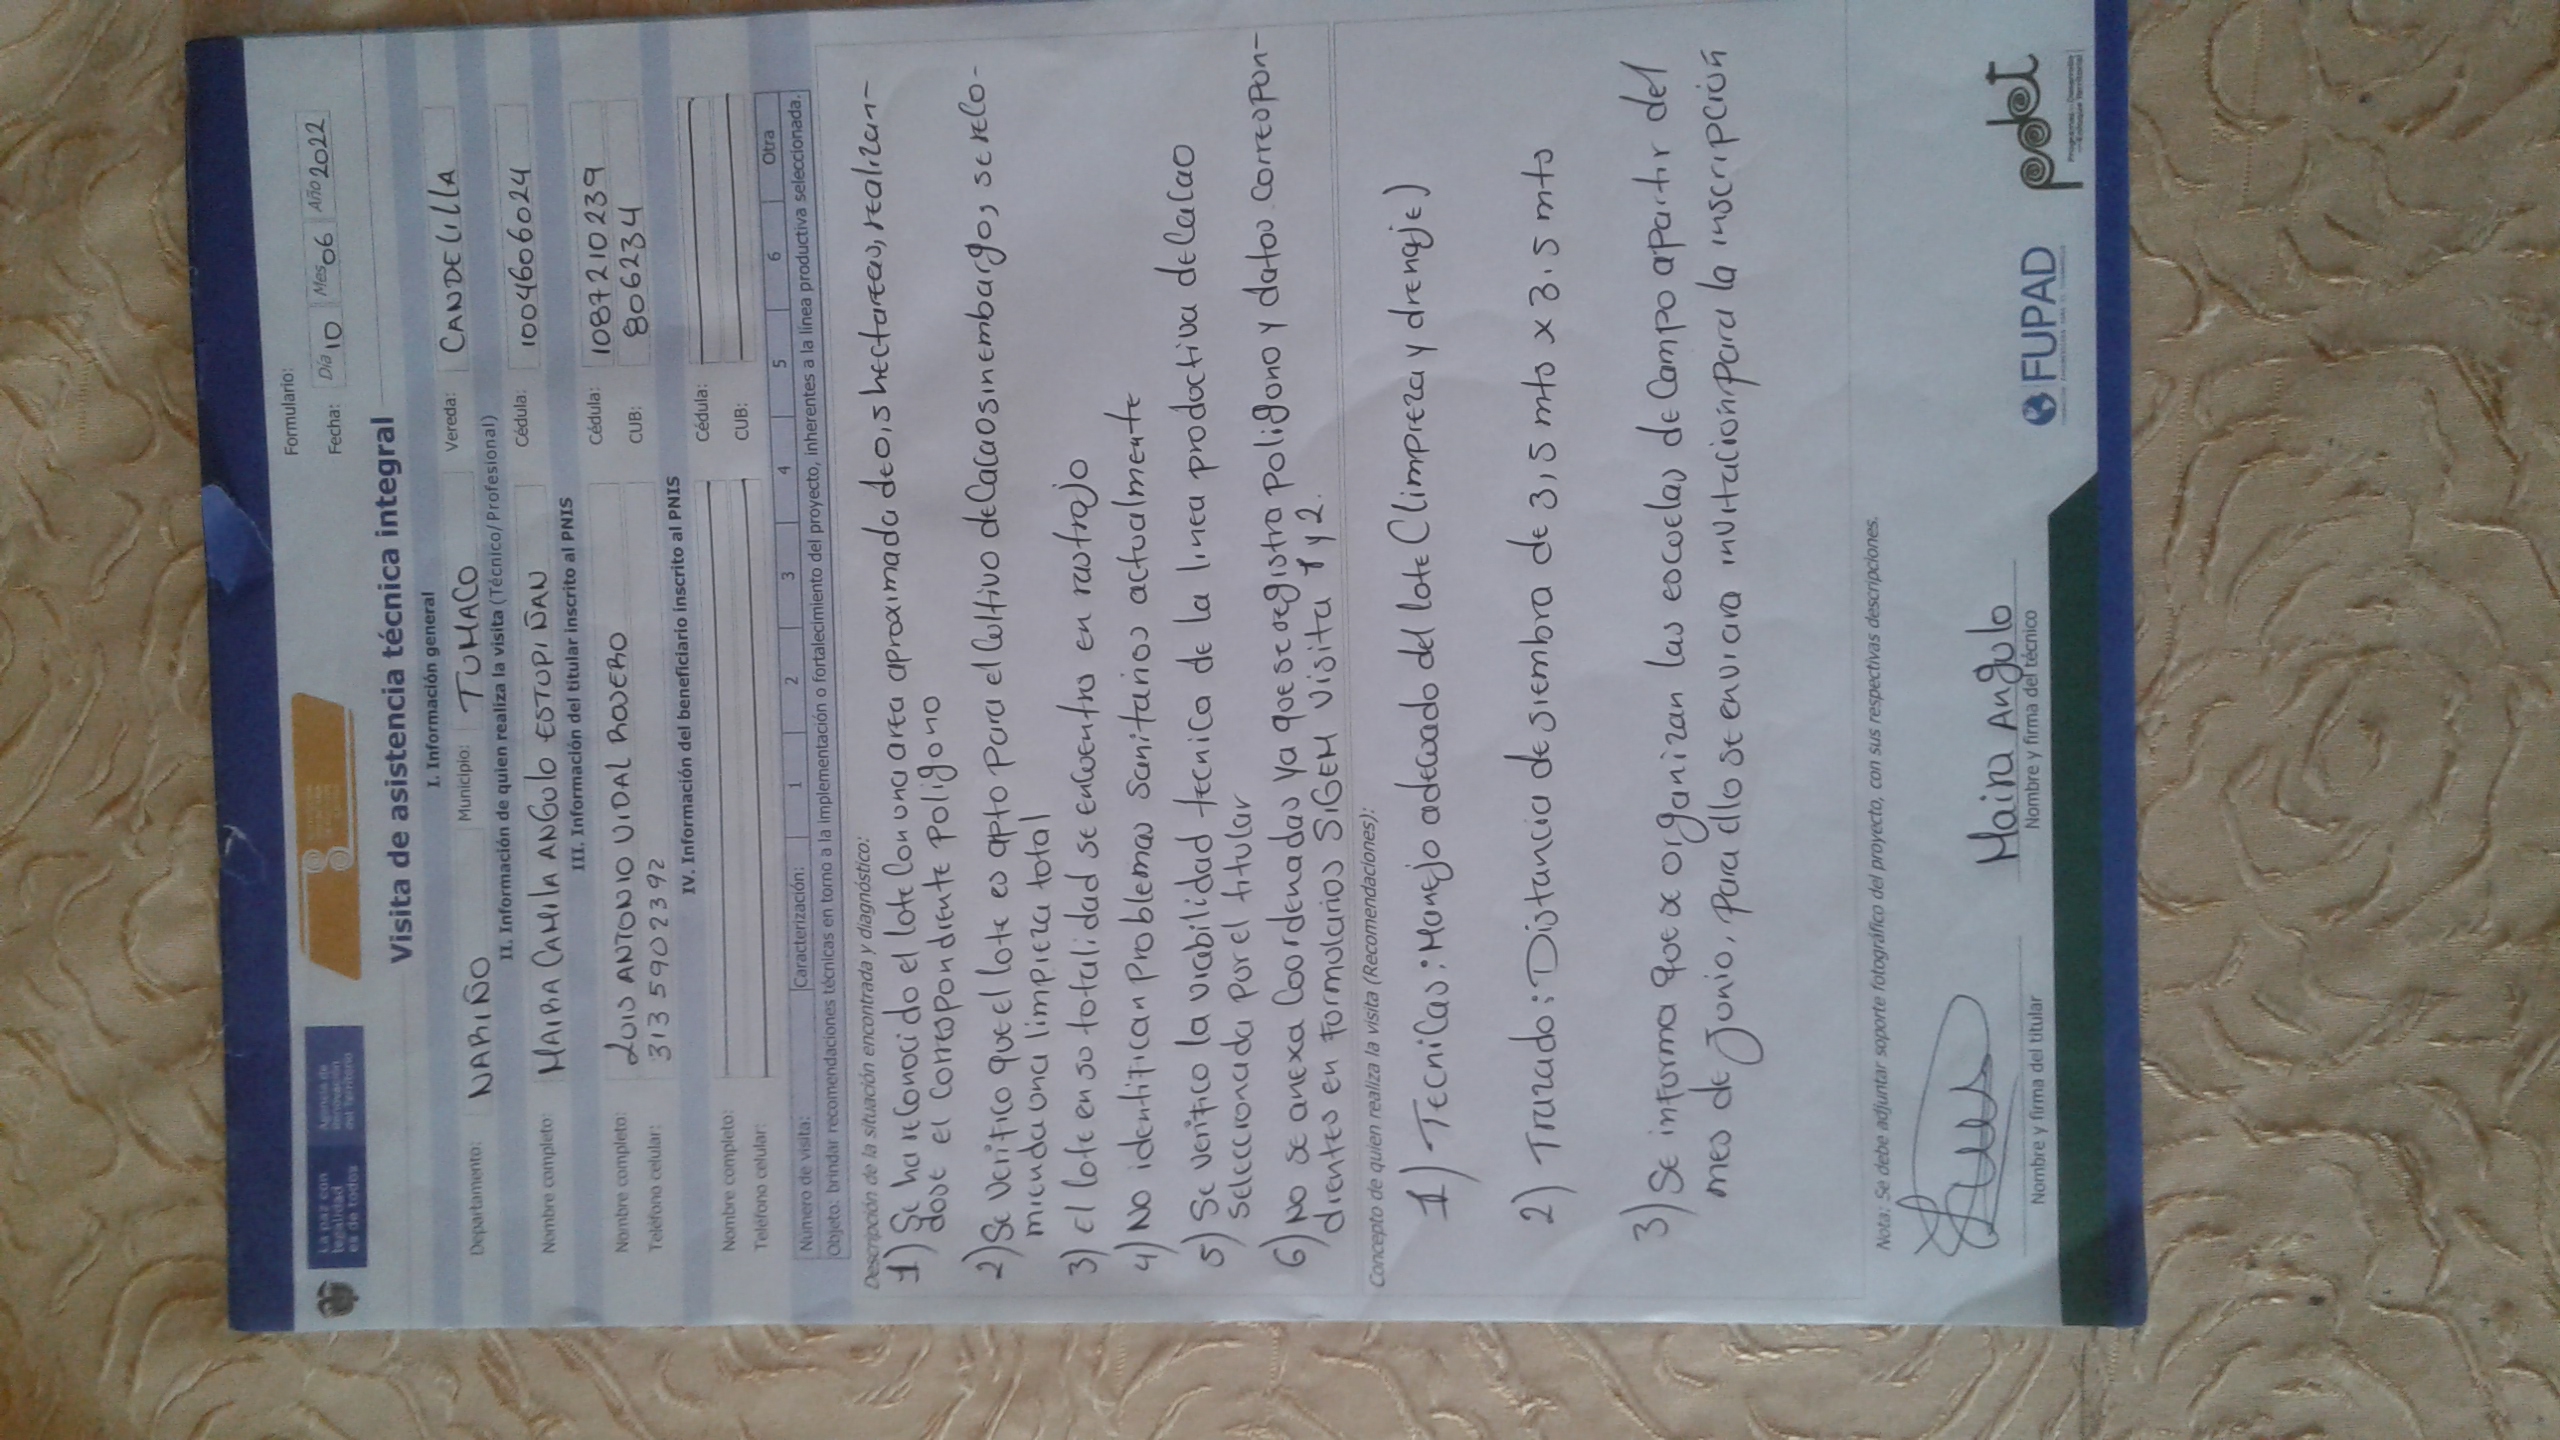 La paz con
legalidad
es de todos
Agencia de
Renovación
del Territorio
Formulario:
Fecha: Día 10 Mes 06 Año 2022
Visita de asistencia técnica integral
I. Información general
Departamento: NARIÑO Municipio: TUMACO Vereda: CANDELILLA
II. Información de quien realiza la visita (Técnico/Profesional)
Nombre completo: MAIRA CAMILA ANGULO ESTUPIÑAN Cédula: 1004606024
III. Información del titular inscrito al PNIS
Nombre completo: LUIS ANTONIO VIDAL ROSERO Cédula: 1087210239
Teléfono celular: 3135902392 CUB: 806234
IV. Información del beneficiario inscrito al PNIS
Nombre completo: Cédula:
Teléfono celular: CUB:
Número de visita: Caracterización: 1 2 3 4 5 6 Otra
Objeto: brindar recomendaciones técnicas en torno a la implementación o fortalecimiento del proyecto, inherentes a la línea productiva seleccionada.
Descripción de la situación encontrada y diagnóstico:
1) Se ha reconocido el lote con una area aproximada de 0,5 hectareas, realizan-
dose el correspondiente poligono
2) Se verifico que el lote es apto para el cultivo de cacao sin embargo, se reco-
mienda una limpieza total
3) el lote en su totalidad se encuentra en rastrojo
4) No identifican problemas sanitarios actualmente
5) Se verifico la viabilidad tecnica de la linea productiva de cacao
seleccionada por el titular
6) No se anexa coordenadas ya que se registra poligono y datos correspon-
dientes en formularios SIGEM visita 1 y 2.
Concepto de quien realiza la visita (Recomendaciones):
1) Tecnicas: Manejo adecuado del lote (limpieza y drenaje)
2) Trazado: Distancia de siembra de 3,5 mts x 3,5 mts
3) Se informa que se organizan las escuelas de campo apartir del
mes de Junio, para ello se enviara invitacion para la inscripción
Nota: Se debe adjuntar soporte fotográfico del proyecto, con sus respectivas descripciones.
Maira Angulo
Nombre y firma del titular Nombre y firma del técnico
FUPAD
pdet
Programas de Desarrollo
con Enfoque Territorial